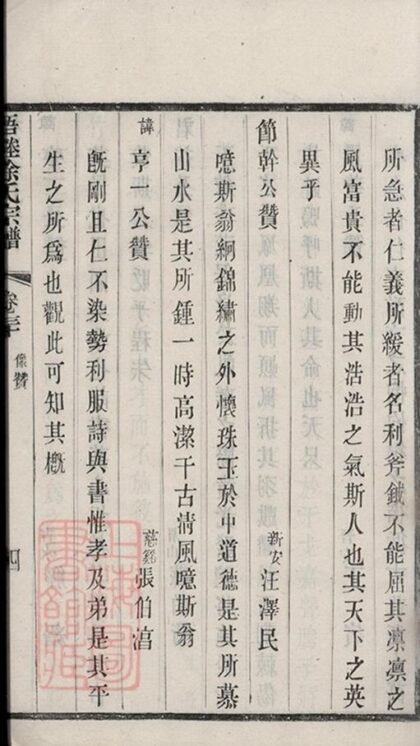 所急者仁義所緩者名利斧鉞不能屈其凛凛之
風富貴不能動其浩浩之氣斯人也其天下之英
異乎
節幹公贊 新安汪澤民
噫斯翁絅錦繡之外懷珠玉於中道德是其所慕
山水是其所鍾一時高潔千古清風噫斯翁
諱亨一公贊 張伯
旣剛且仁不染勢利服詩與書惟孝及弟是其平
生之所爲也觀此可知其槪
徐氏宗譜 卷 像贊 四